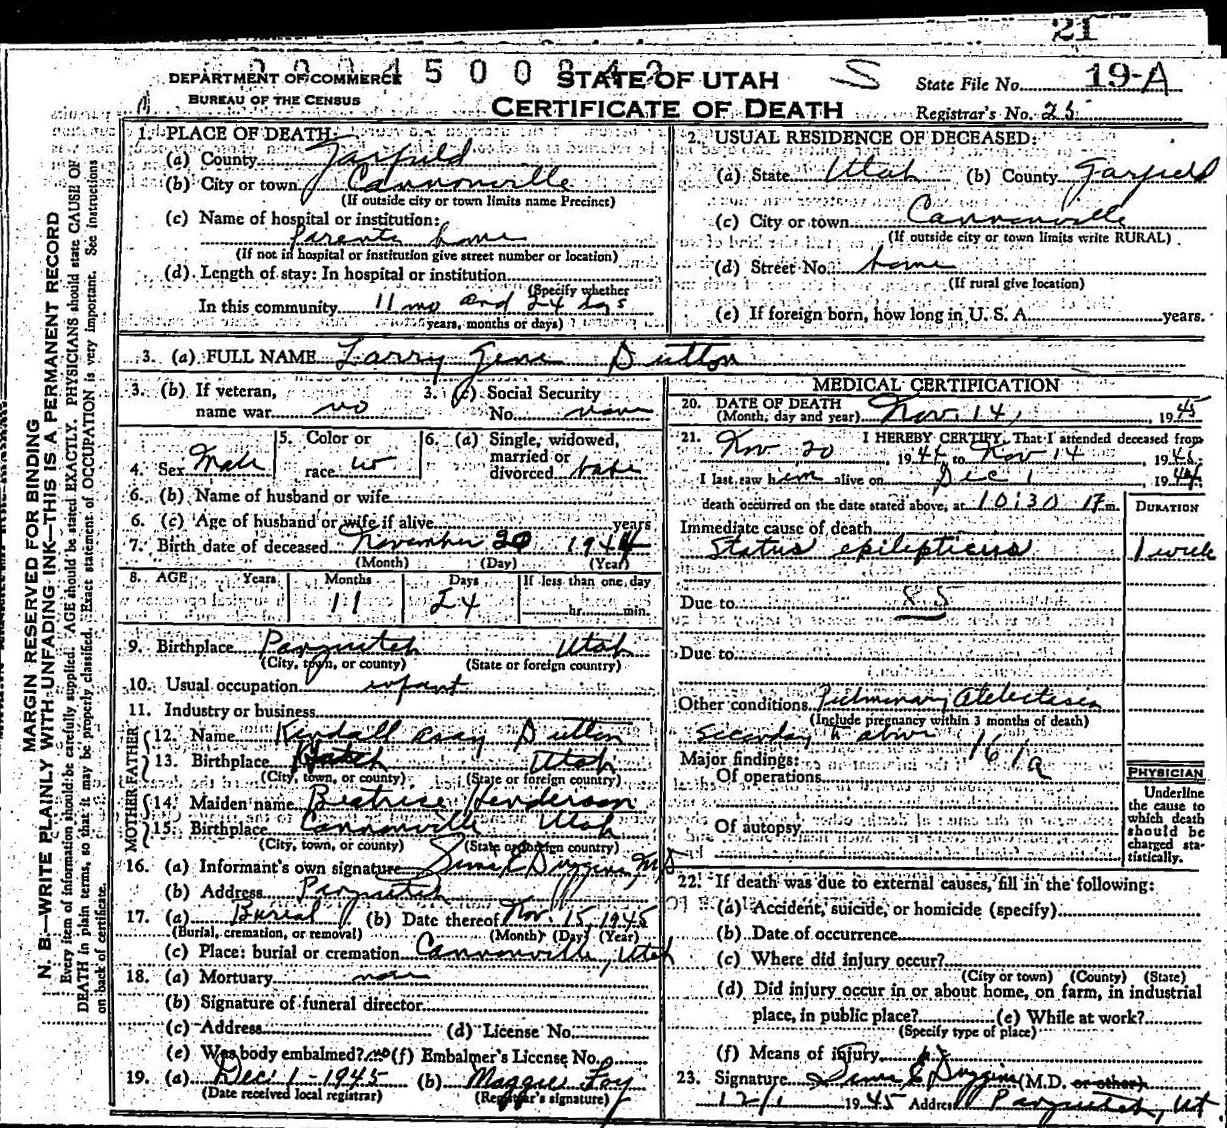 21
DEPARTMENT OF COMMERCE
BUREAU OF THE CENSUS
STATE OF UTAH
CERTIFICATE OF DEATH
S
State File No. 19-A
Registrar's No. 25
MARGIN RESERVED FOR BINDING
N. B.—WRITE PLAINLY WITH UNFADING INK—THIS IS A PERMANENT RECORD
Every item of information should be carefully supplied. AGE should be stated EXACTLY. PHYSICIANS should state CAUSE OF
DEATH in plain terms, so that it may be properly classified. Exact statement of OCCUPATION is very important. See instructions
on back of certificate.
1. PLACE OF DEATH:
(a) County Garfield
(b) City or town Cannonville
(If outside city or town limits name Precinct)
(c) Name of hospital or institution:
Parents home
(If not in hospital or institution give street number or location)
(d) Length of stay: In hospital or institution
(Specify whether
In this community 11 mo and 24 dys
years, months or days)
2. USUAL RESIDENCE OF DECEASED:
(a) State Utah (b) County Garfield
(c) City or town Cannonville
(If outside city or town limits write RURAL)
(d) Street No. home
(If rural give location)
(e) If foreign born, how long in U. S. A. years.
3. (a) FULL NAME Larry Gene Dutton
3. (b) If veteran, name war no
3. (c) Social Security No. none
4. Sex Male
5. Color or race w
6. (a) Single, widowed, married or divorced babe
6. (b) Name of husband or wife
6. (c) Age of husband or wife if alive years
7. Birth date of deceased November 20 1944
(Month) (Day) (Year)
8. AGE Years Months Days If less than one day
11 24 hr. min.
9. Birthplace Panguitch Utah
(City, town, or county) (State or foreign country)
10. Usual occupation infant
11. Industry or business
FATHER
12. Name Kendall Asay Dutton
13. Birthplace Hatch Utah
(City, town, or county) (State or foreign country)
MOTHER
14. Maiden name Beatrice Henderson
15. Birthplace Cannonville Utah
(City, town, or county) (State or foreign country)
16. (a) Informant's own signature Sims E Duggins MD
(b) Address Panguitch
17. (a) Burial (b) Date thereof Nov. 15, 1945
(Burial, cremation, or removal) (Month) (Day) (Year)
(c) Place: burial or cremation Cannonville, Utah
18. (a) Mortuary none
(b) Signature of funeral director
(c) Address (d) License No.
(e) Was body embalmed? no (f) Embalmer's License No.
19. (a) Dec. 1-1945 (b) Maggie Foy
(Date received local registrar) (Registrar's signature)
MEDICAL CERTIFICATION
20. DATE OF DEATH
(Month, day and year) Nov. 14, 1945
21. I HEREBY CERTIFY, That I attended deceased from
Nov 20, 1944 to Nov 14, 1945
I last saw him alive on Dec 1, 1944
death occurred on the date stated above, at 10:30 P m.
DURATION
Immediate cause of death
Status epilepticus 1 week
Due to 85
Due to
Other conditions Pulmonary Atelectasis
(Include pregnancy within 3 months of death)
Seconday to above 161a
Major findings:
Of operations
Of autopsy
PHYSICIAN
Underline
the cause to
which death
should be
charged sta-
tistically.
22. If death was due to external causes, fill in the following:
(a) Accident, suicide, or homicide (specify)
(b) Date of occurrence
(c) Where did injury occur?
(City or town) (County) (State)
(d) Did injury occur in or about home, on farm, in industrial
place, in public place? (e) While at work?
(Specify type of place)
(f) Means of injury
23. Signature Sims E Duggins (M.D. or other)
12/1 1945 Address Panguitch, Ut